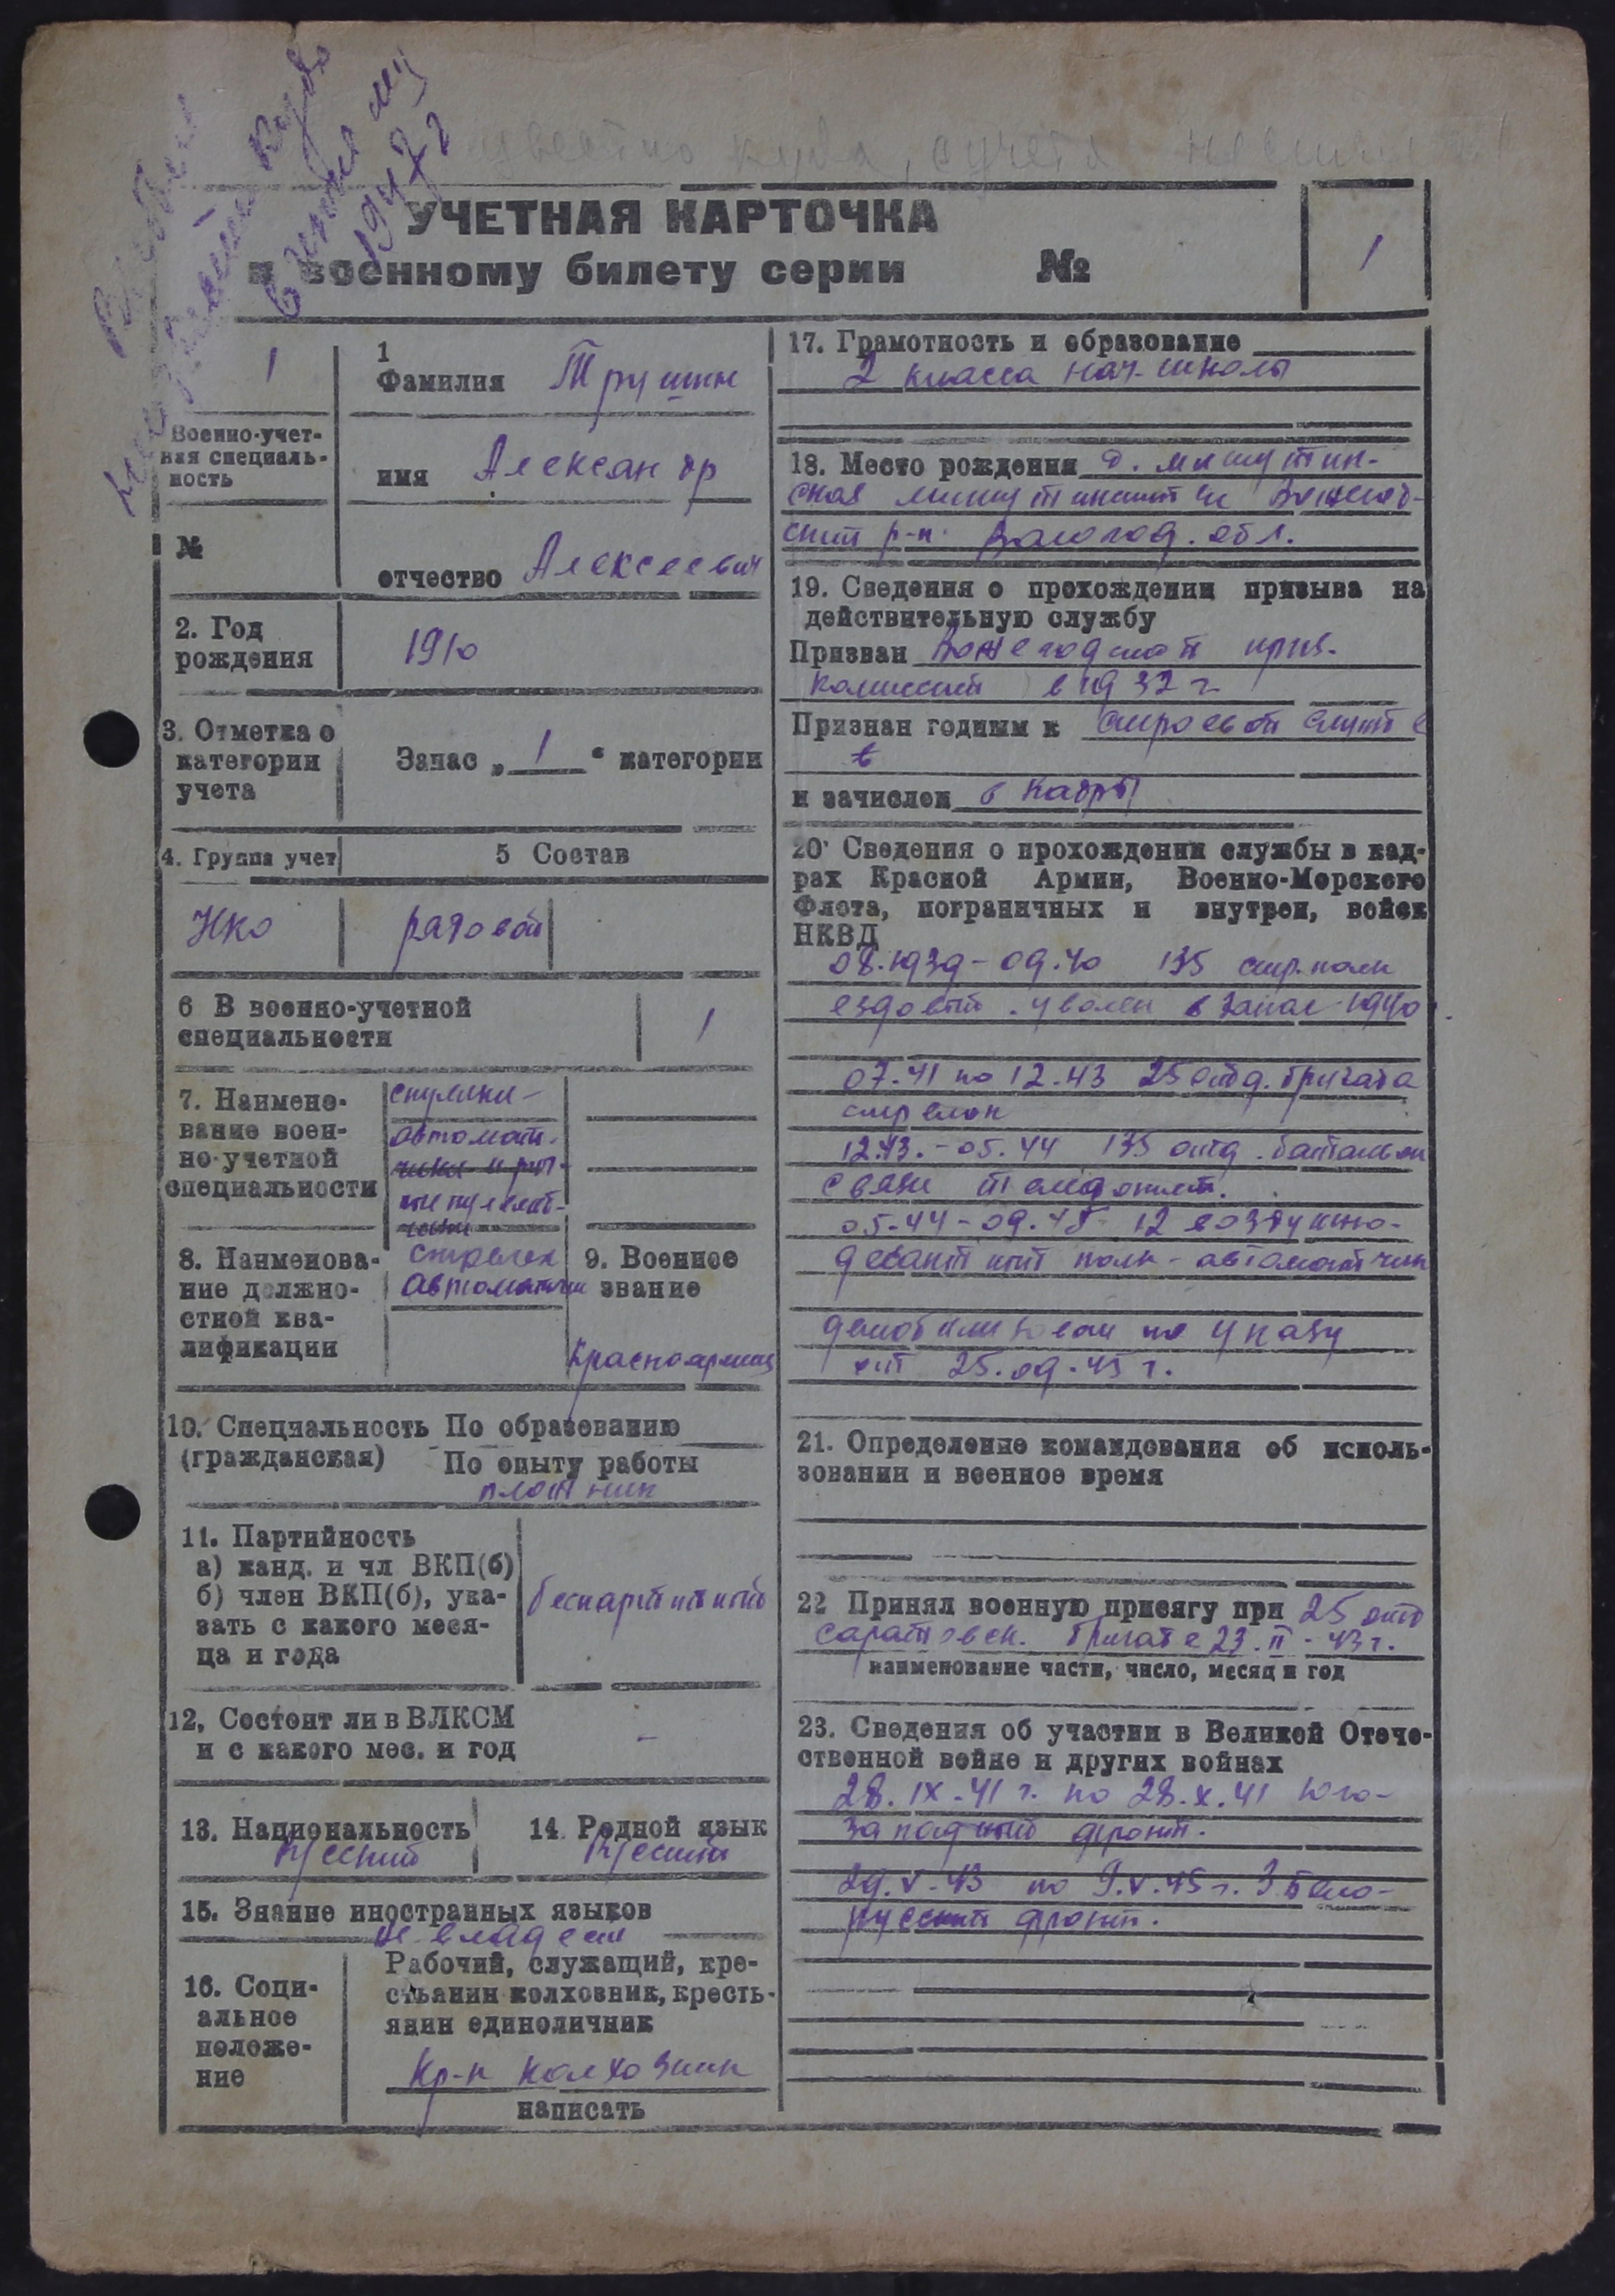 в июле м-ц
1947 г
известно куда, с учета
УЧЕТНАЯ КАРТОЧКА
к военному билету серии №
1
1
Военно-учет-
ная специаль-
ность
№
1
Фамилия Трушин
имя Александр
отчество Алексеевич
2. Год
рождения
1910
3. Отметка о
категории
учета
Запас „ 1 “ категории
4. Группа учет
5 Состав
НКО
рядовой
6 В военно-учетной
специальности
1
7. Наимено-
вание воен-
но-учетной
специальности
автомат-
чики и руч-
ные пулемет-
чики
8. Наименова-
ние должно-
стной ква-
лификации
стрелек
автоматчик
9. Военное
звание
Красноармеец
10. Специальность По образованию
(гражданская) По опыту работы
плотник
11. Партийность
а) канд. и чл ВКП(б)
б) член ВКП(б), ука-
зать с какого меся-
ца и года
беспартийный
12. Состоит ли в ВЛКСМ
и с какого мес. и год
-
13. Национальность
Русский
14. Родной язык
Русский
15. Знание иностранных языков
не владеет
16. Соци-
альное
положе-
ние
Рабочий, служащий, кре-
стьянин колхозник, кресть-
янин единоличник
Кр-н колхозник
написать
17. Грамотность и образование
2 класса нач. школы
18. Место рождения д. Мишутин-
ская Вожегод-
ский р-н. Вологод. обл.
19. Сведения о прохождении призыва на
действительную службу
Призван Вожегодской приз.
комиссией в 1932 г.
Признан годным к строевой службе
в
и зачислен в кадры
20. Сведения о прохождении службы в кад-
рах Красной Армии, Военно-Морского
Флота, пограничных и внутрен, войск
НКВД
08.1939 - 09.40 135 стр. полк
ездовый. уволен в запас 1940
07.41 по 12.43 25 отд. бригада
стрелок
12.43. - 05.44 135 отд. батальон
связи телефонист.
05.44 - 09.45 12 воздушно-
десантный полк - автоматчик
демобилизован по указу
от 25.09.45 г.
21. Определение командования об исполь-
зовании и военное время
22 Принял военную присягу при 25 отд
Саратовск. бригаде 23.II-43 г.
наименование части, число, месяц и год
23. Сведения об участии в Великой Отече-
ственной войне и других войнах
28.IX.41 г. по 28.X.41 Юго-
западный фронт.
29.V.43 по 9.V.45 г. 3 Бело-
русский фронт.